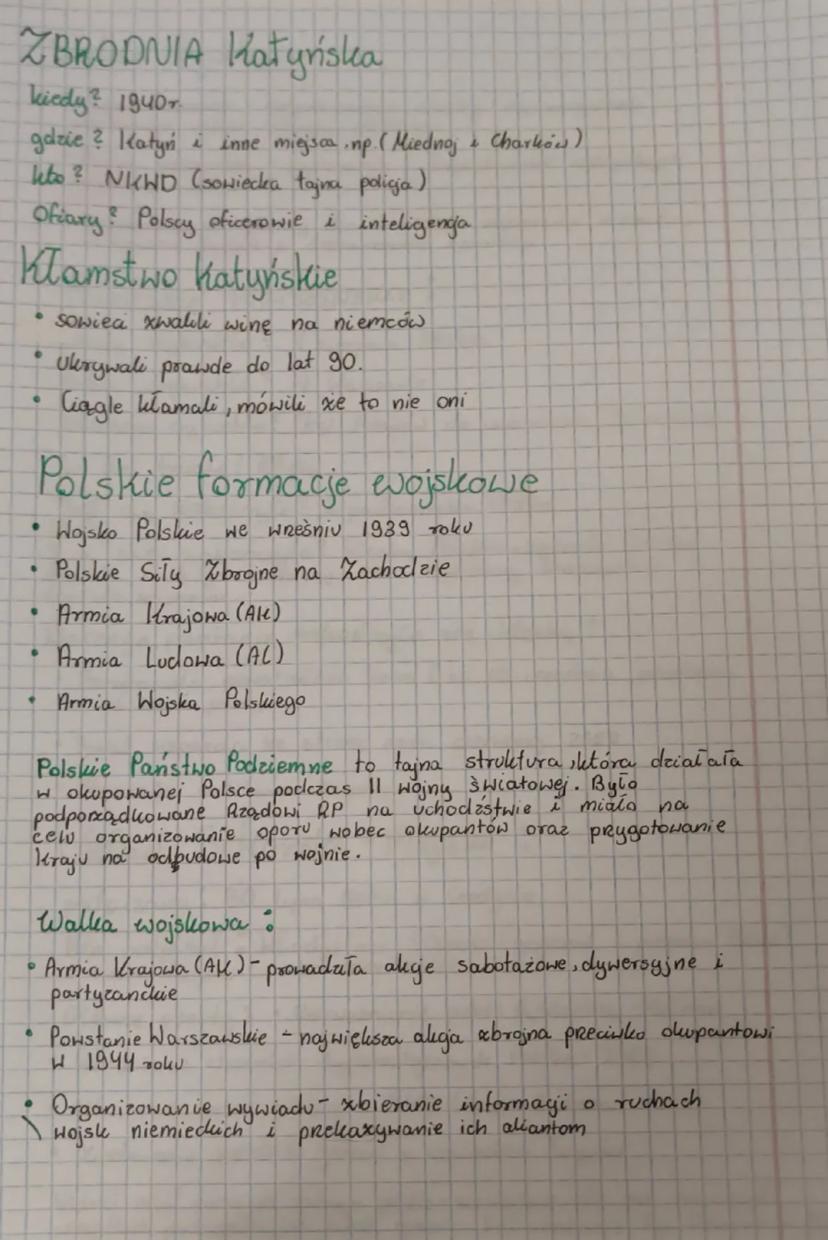 ZBRODNIA Katyńska
kiedy? 1940r.
gdzie? Katyń i inne miejsca.np.(Miednoj i Charków)
kto? NKWD (sowiecka tajna policja)
Ofiary? Polscy oficerowie i inteligencja
Kłamstwo Katyńskie
• sowieci zwalili winę na niemców
• Ukrywali prawde do lat 90.
• Ciągle kłamali, mówili że to nie oni
Polskie formacje wojskowe
• Wojsko Polskie we wrześniu 1939 roku
• Polskie Siły Zbrojne na Zachodzie
• Armia Krajowa (AK)
• Armia Ludowa (AL)
• Armia Wojska Polskiego
Polskie Państwo Podziemne to tajna struktura, która działała
w okupowanej Polsce podczas II wojny światowej. Było
podporządkowane Rządowi RP na uchodźstwie i miało na
celu organizowanie oporu wobec okupantów oraz przygotowanie
kraju na odbudowe po wojnie.
Walka wojskowa:
• Armia Krajowa (AK) - prowadziła akcje sabotażowe, dywersyjne i
partyzanckie
• Powstanie Warszawskie - największa akcja zbrojna przeciwko okupantowi
w 1944 roku
• Organizowanie wywiadu - zbieranie informacji o ruchach
wojsk niemieckich i przekazywanie ich aliantom